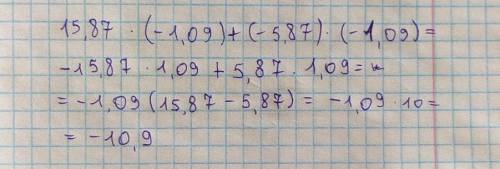 15,87 · (-1,09) + (-5,87) · (-1,09) =
-15,87 · 1,09 + 5,87 · 1,09 =
= -1,09 (15,87 - 5,87) = -1,09 · 10 =
= -10,9